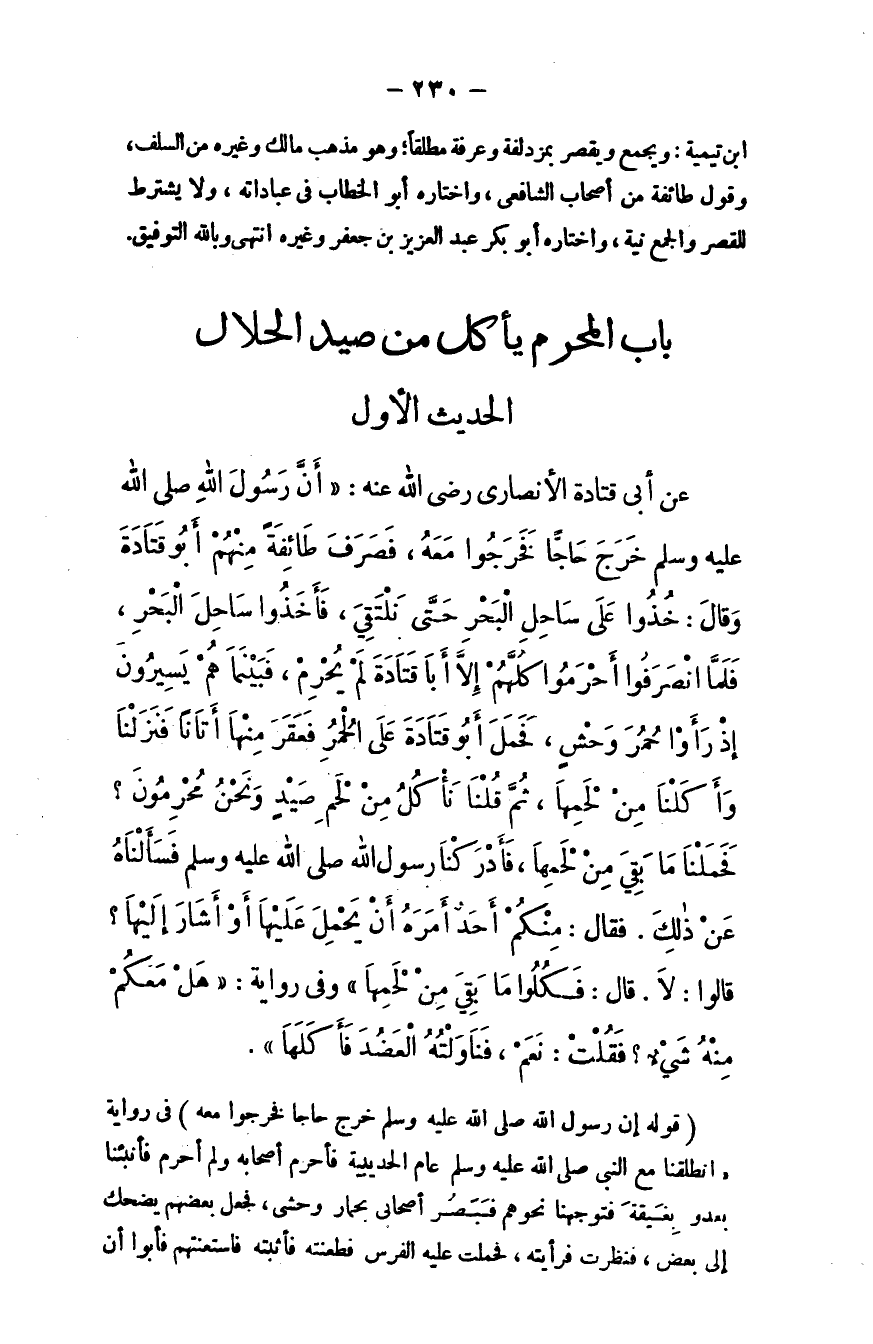 - ٢٣٠ -
ابن تيمية : ويجمع ويقصر بمزدلفة وعرفة مطلقاً؛ وهو مذهب مالك وغيره من السلف،
وقول طائفة من أصحاب الشافعى ، واختاره أبو الخطاب فى عباداته ، ولا يشترط
للقصر والجمع نية ، واختاره أبو بكر عبد العزيز بن جعفر وغيره انتهى وبالله التوفيق.
باب المحرم يأكل من صيد الحلال
الحديث الأول
عن أبى قتادة الأنصارى رضى الله عنه : « أَنَّ رَسُولَ اللهِ صلى الله
عليه وسلم خَرَجَ حَاجًّا فَخَرَجُوا مَعَهُ ، فَصَرَفَ طَائِفَةً مِنْهُمْ أَبُو قَتَادَةَ
وَقَالَ : خُذُوا عَلَى سَاحِلِ الْبَحْرِ حَتَّى نَلْتَقِيَ ، فَأَخَذُوا سَاحِلَ الْبَحْرِ ،
فَلَمَّا انْصَرَفُوا أَحْرَمُوا كلُّهُمْ إِلاَّ أَبَا قَتَادَةَ لَمْ يُحْرِمْ ، فَبَيْنَمَا هُمْ يَسِيرُونَ
إِذْ رَأَوْا حُمُرَ وَحْشٍ ، فَحَمَلَ أَبُو قَتَادَةَ عَلَى الْحُمُرُ فَعَقَرَ مِنْهَا أَتَانًا فَنَزَلْنَا
وَأَكَلْنَا مِنْ لَحْمِهَا ، ثُمَّ قُلْنَا نَأْكُلُ مِنْ لَحْمِ صَيْدٍ وَنَحْنُ مُحْرِمُونَ ؟
فَحَمَلْنَا مَا بَقِيَ مِنْ لَحْمِهَا ، فَأَدْرَكْنَا رسول الله صلى الله عليه وسلم فَسَأَلْنَاهُ
عَنْ ذٰلِكَ . فقال : مِنْكُمْ أَحَدٌ أَمَرَهُ أَنْ يَحْمِلَ عَلَيْهَا أَوْ أَشَارَ إِلَيْهَا ؟
قالوا : لاَ . قال : فَكُلُوا مَا بَقِيَ مِنْ لَحْمِهَا » وفى رواية : « هَلْ مَعَكُمْ
مِنْهُ شَيْءٌ ؟ فَقُلْتُ : نَعَمْ ، فَنَاوَلْتُهُ الْعَضُدَ فَأَكَلَهَا » .
( قوله إن رسول الله صلى الله عليه وسلم خرج حاجا فخرجوا معه ) فى رواية
« انطلقنا مع النبى صلى الله عليه وسلم عام الحديبية فأحرم أصحابه ولم أحرم فأنبئنا
بعدو بِغَيقةَ فتوجهنا نحوهم فتَبَصُر أصحابى بحمار وحشى ، فجعل بعضهم يضحك
إلى بعض ، فنظرت فرأيته ، فحملت عليه الفرس فطعنته فأثبته فاستعنتهم فأبوا أن